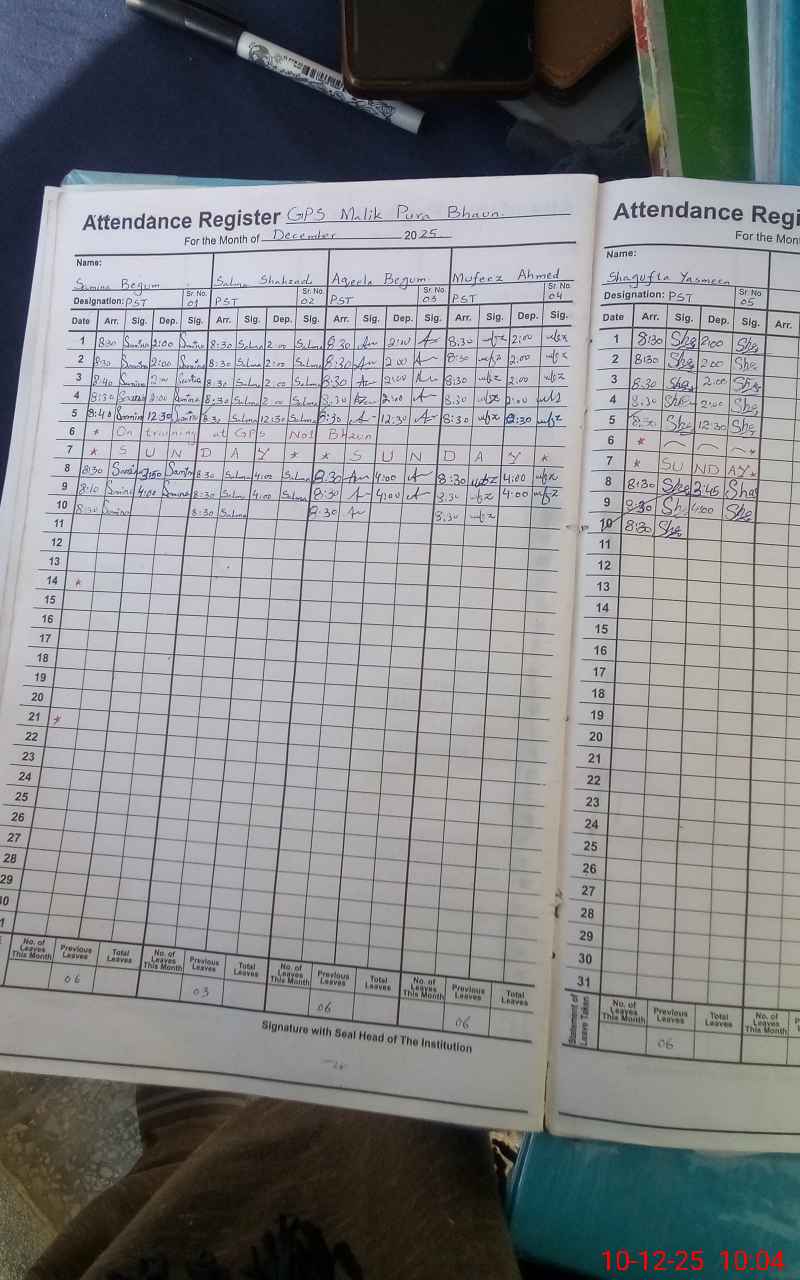 Attendance Register GPS Malik Pura Bhaun.
For the Month of December 2025.
Name:
Samina Begum Salma Shahzadi Aqeela Begum Mufeez Ahmed
Designation: PST Sr. No. 01 PST Sr. No. 02 PST Sr. No. 03 PST Sr. No. 04
Date Arr. Sig. Dep. Sig. Arr. Sig. Dep. Sig. Arr. Sig. Dep. Sig. Arr. Sig. Dep. Sig.
1 8:30 Samina 2:00 Samina 8:30 Salma 2:00 Salma 8:30 2:00 8:30 2:00
2 8:30 Samina 2:00 Samina 8:30 Salma 2:00 Salma 8:30 2:00 8:30 2:00
3 8:40 Samina 2:00 Samina 8:30 Salma 2:00 Salma 8:30 2:00 8:30 2:00
4 8:30 Samina 2:00 Samina 8:30 Salma 2:00 Salma 8:30 2:00 8:30 2:00
5 8:40 Samina 12:30 Samina 8:30 Salma 12:30 Salma 8:30 12:30 8:30 12:30
6 * On training at GPS No1 Bhaun
7 * S U N D A Y * * S U N D A Y *
8 8:30 Samina Samina 8:30 Salma 4:00 Salma 8:30 4:00 8:30 4:00
9 8:10 Samina 4:00 Samina 8:30 Salma 4:00 Salma 8:30 4:00 8:30 4:00
10 8:30 Samina 8:30 Salma 8:30 8:30
11
12
13
14 *
15
16
17
18
19
20
21 *
22
23
24
25
26
27
28
29
30
No. of Leaves This Month Previous Leaves Total Leaves No. of Leaves This Month Previous Leaves Total Leaves No. of Leaves This Month Previous Leaves Total Leaves No. of Leaves This Month Previous Leaves Total Leaves
06 03 06 06
Signature with Seal Head of The Institution
Attendance Regi
For the Mont
Name:
Shagufta Yasmeen
Designation: PST Sr. No. 05
Date Arr. Sig. Dep. Sig. Arr.
1 8:30 She 2:00 She
2 8:30 She 2:00 She
3 8:30 She 2:00 She
4 8:30 She 2:00 She
5 8:30 She 12:30 She
6 * *
7 * SU ND AY *
8 8:30 She 3:45 Sha
9 8:30 Sh 4:00 She
10 8:30 She
11
12
13
14
15
16
17
18
19
20
21
22
23
24
25
26
27
28
29
30
31
Statement of Leave Taken No. of Leaves This Month Previous Leaves Total Leaves No. of Leaves This Month Previous Leaves
06
10-12-25 10:04